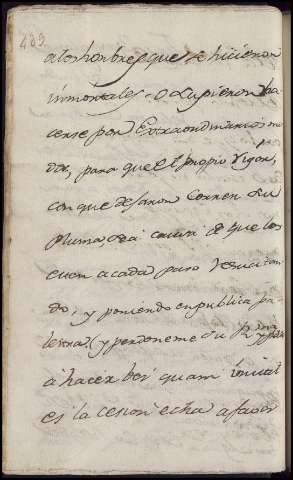 a los honbres que se hicieron
inmortales o supieron ha-
cerse por Extraordinarios mo
dos, para que el propio vigor,
con que dejaron correr su
Pluma, sea causa de que los
esten a cada paso
do, y poniendo en publica pa-
lestra (y perdoneme su R.
á hacer ber quam inutil
es la cesion echa a fabor